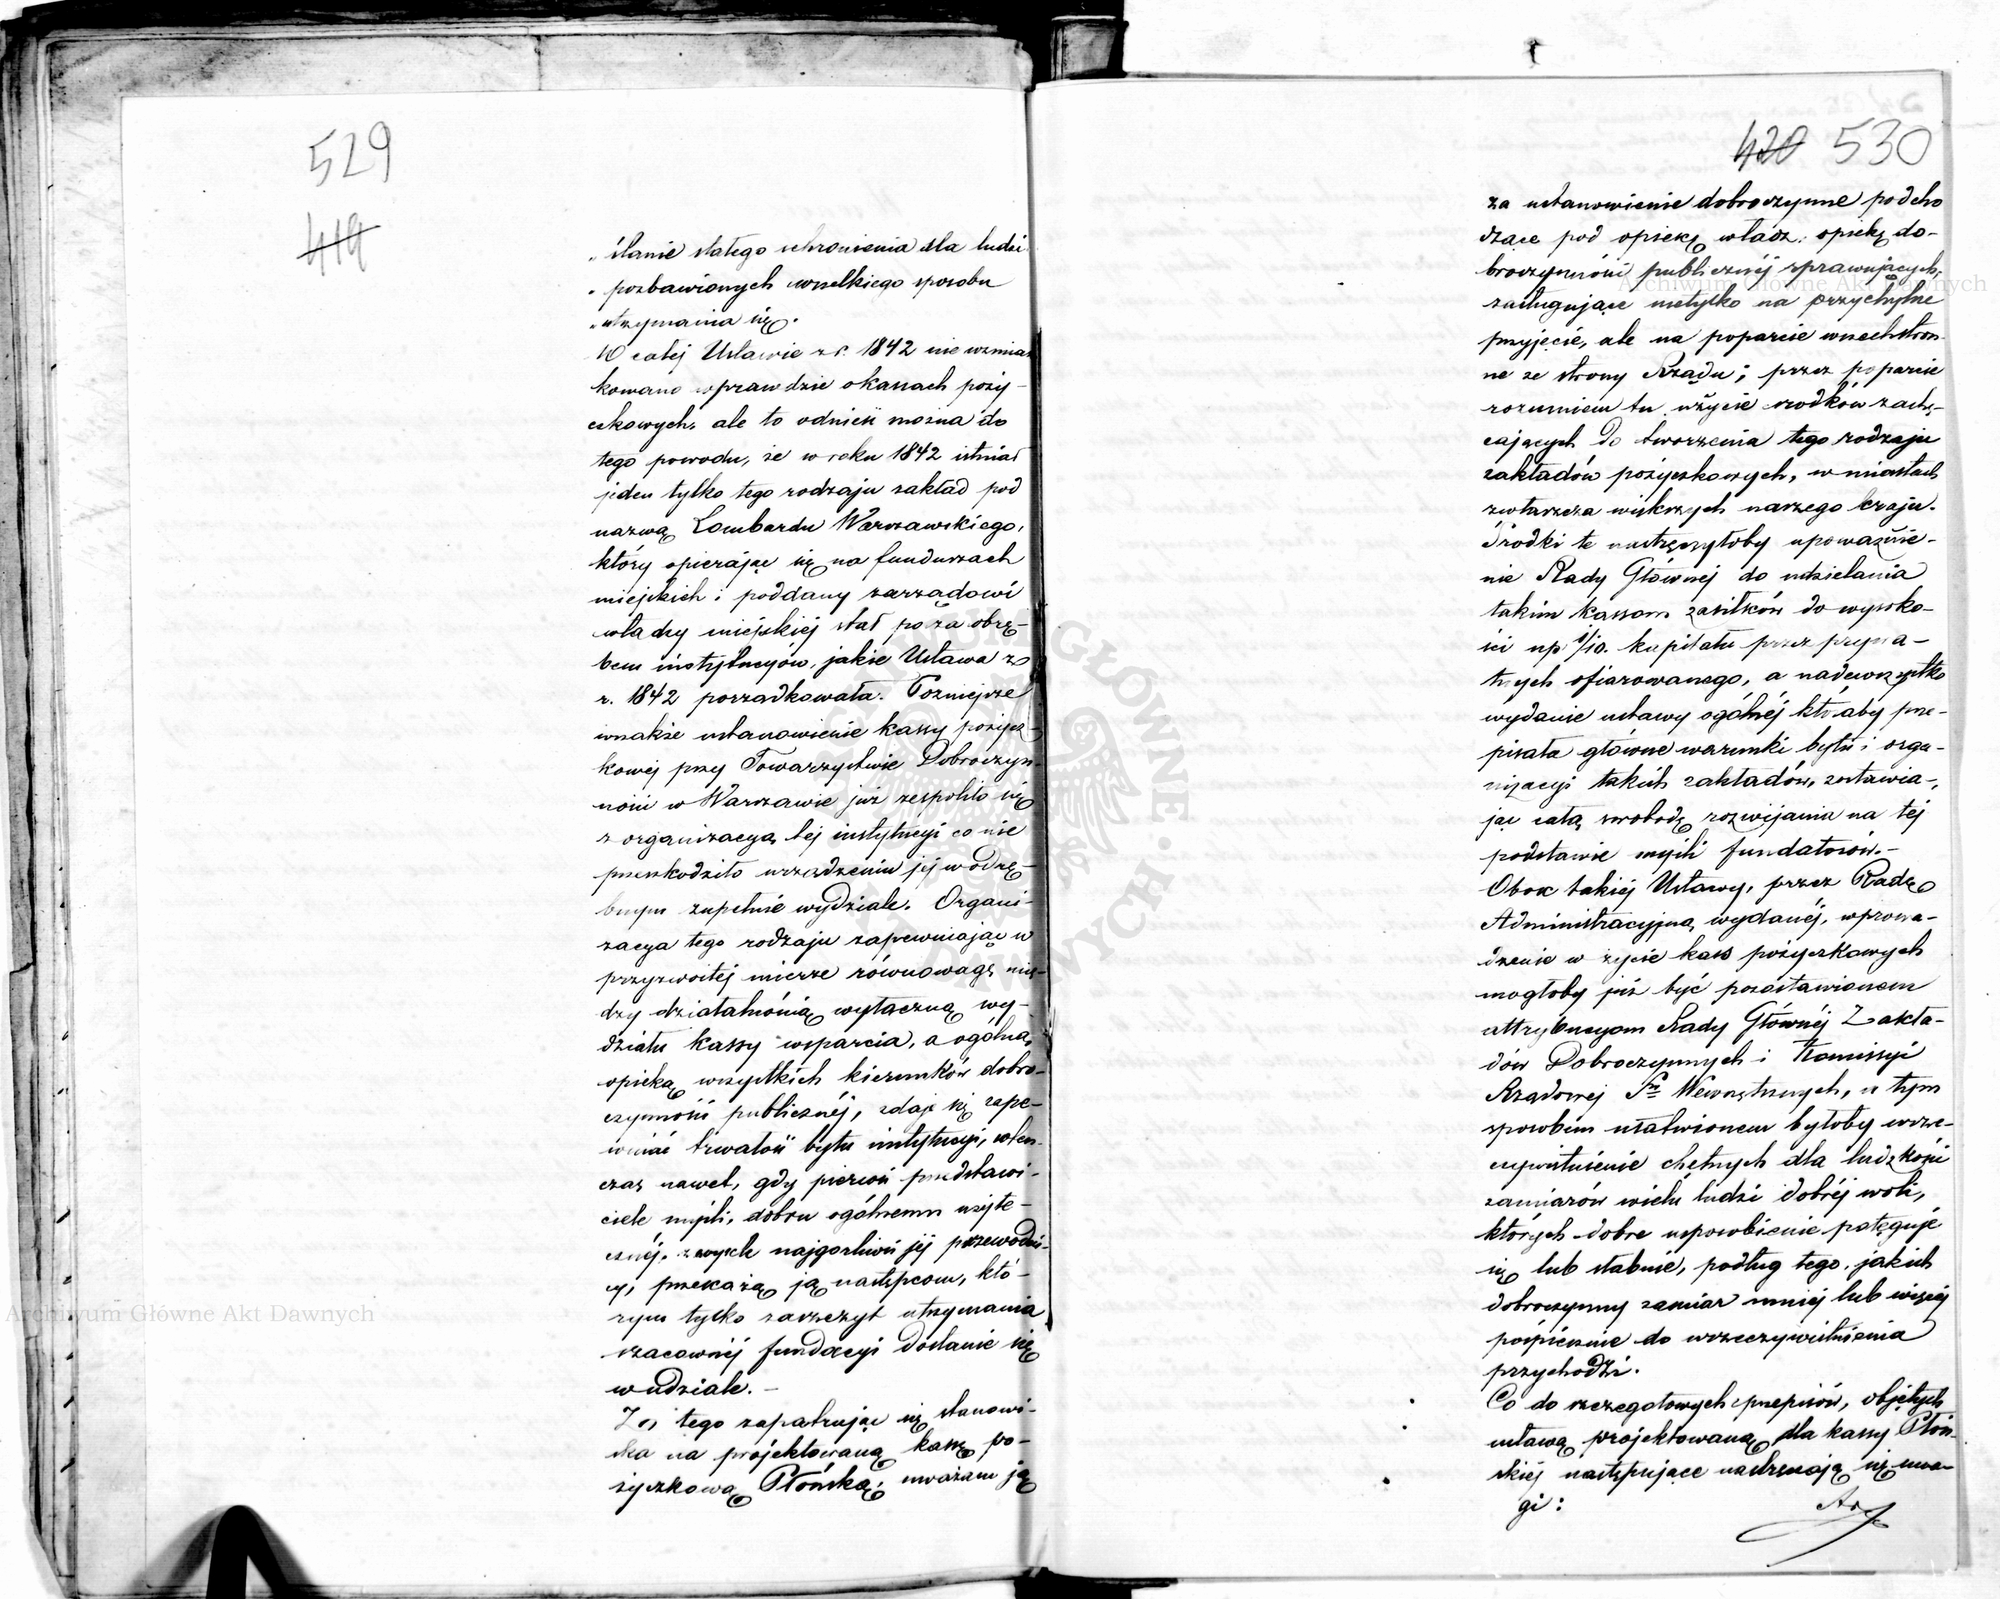 529
419
„ słanie stałego schronienia dla ludzi
„ pozbawionych wszelkiego sposobu
„ utrzymania się.
W całej Ustawie z r. 1842 nie wzmian
kowano wprawdzie o kassach poży-
czkowych, ale to odnieść można do
tego powodu, że w roku 1842 istniał
jeden tylko tego rodzaju zakład pod
nazwą Lombardu Warszawskiego,
który opierając się na funduszach
miejskich i poddany zarządowi
władzy miejskiej stał poza obrę-
bem instytucyów, jakie Ustawa z
r. 1842 porządkowała. Późniejsze
wszakże ustanowienie kassy pożycz-
kowej przy Towarzystwie Dobroczyn-
ności w Warszawie już zespoliło się
z organizacyą tej instytucyi co nie
przeszkodziło urządzeniu jej w odrę-
bnym zupełnie wydziale. Organi-
zacya tego rodzaju zapewniając w
przyzwoitej mierze równowagę mię-
dzy działalnością wyłączną wy-
działu kassy wsparcia, a ogólną
opieką wszystkich kierunków dobro-
czynności publicznéj, zdaje się zape-
wniać trwałość bytu instytucyi, wten-
czas nawet, gdy pierwsi przedstawi-
ciele myśli, dobru ogólnemu użyte-
cznéj, zwykle najgorliwsi jéj przewodni-
cy, przekażą ją następcom, któ-
rym tylko zaszczyt utrzymania
szacownéj fundacyi dostanie się
w udziale.-
Z tego zapatrując się stanowi-
ska na projektowaną kassę po-
życzkową Płońską, uważam ją
420 530
za ustanowienie dobroczynne podcho
dzące pod opiekę władz, opiekę do-
broczynności publicznéj sprawujących,
zasługujące nietylko na przychylne
przyjęcie, ale na poparcie wszechstron-
ne ze strony Rządu; przez poparcie
rozumiem tu użycie środków zachę-
cających do tworzenia tego rodzaju
zakładów pożyczkowych, w miastach
zwłaszcza większych naszego kraju.
Środki te nastręczyłoby upoważnie-
nie Rady Głównéj do udzielania
takim kassom zasiłków do wysoko-
ści np 1/10. kapitału przez prywa-
tnych ofiarowanego, a nadewszystko
wydanie ustawy ogólnéj któraby prze-
pisała główne warunki bytu i orga-
nizacyi takich zakładów, zostawia-
jąc całą swobodę rozwijania na téj
podstawie myśli fundatorów.-
Obok takiéj Ustawy, przez Radę
Administracyjną wydanéj, wprowa-
dzenie w życie kass pożyczkowych
mogłoby już być pozostawionem
attrybucyom Rady Głównéj Zakła-
dów Dobroczynnych i Kommissyi
Rządowej S. Wewnętrznych, a tym
sposobem ułatwionem byłoby urze-
czywistnienie chętnych dla ludzkości
zamiarów wielu ludzi dobréj woli,
których dobre usposobienie potęguje
się lub słabnie, podług tego, jakich
dobroczynny zamiar mniéj lub więcéj
pośpiesznie do urzeczywistnienia
przychodzi.
Co do szczegółowych przepisów, objętych
ustawą projektowaną dla kassy Płoń-
skiéj następujące nastręczają się uwa-
gi:
Archiwum Główne Akt Dawnych
Archiwum Główne Akt Dawnych